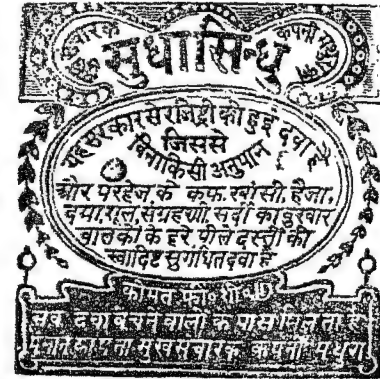 सुधासिन्धु
यह सरकार से रजिट्री की हुई दवा है
जिससे
बिना किसी अनुपान
और परहेज़ के कफ, खांसी, हैजा,
दमा, शूल, संग्रहणी, सर्दी का बुखार
बालकों के हरे, पीले दस्तों की
स्वादिष्ट सुगंधित दवा है
कीमत फी० शीशी
सब दवा बेचने वालों के पास मिलता है